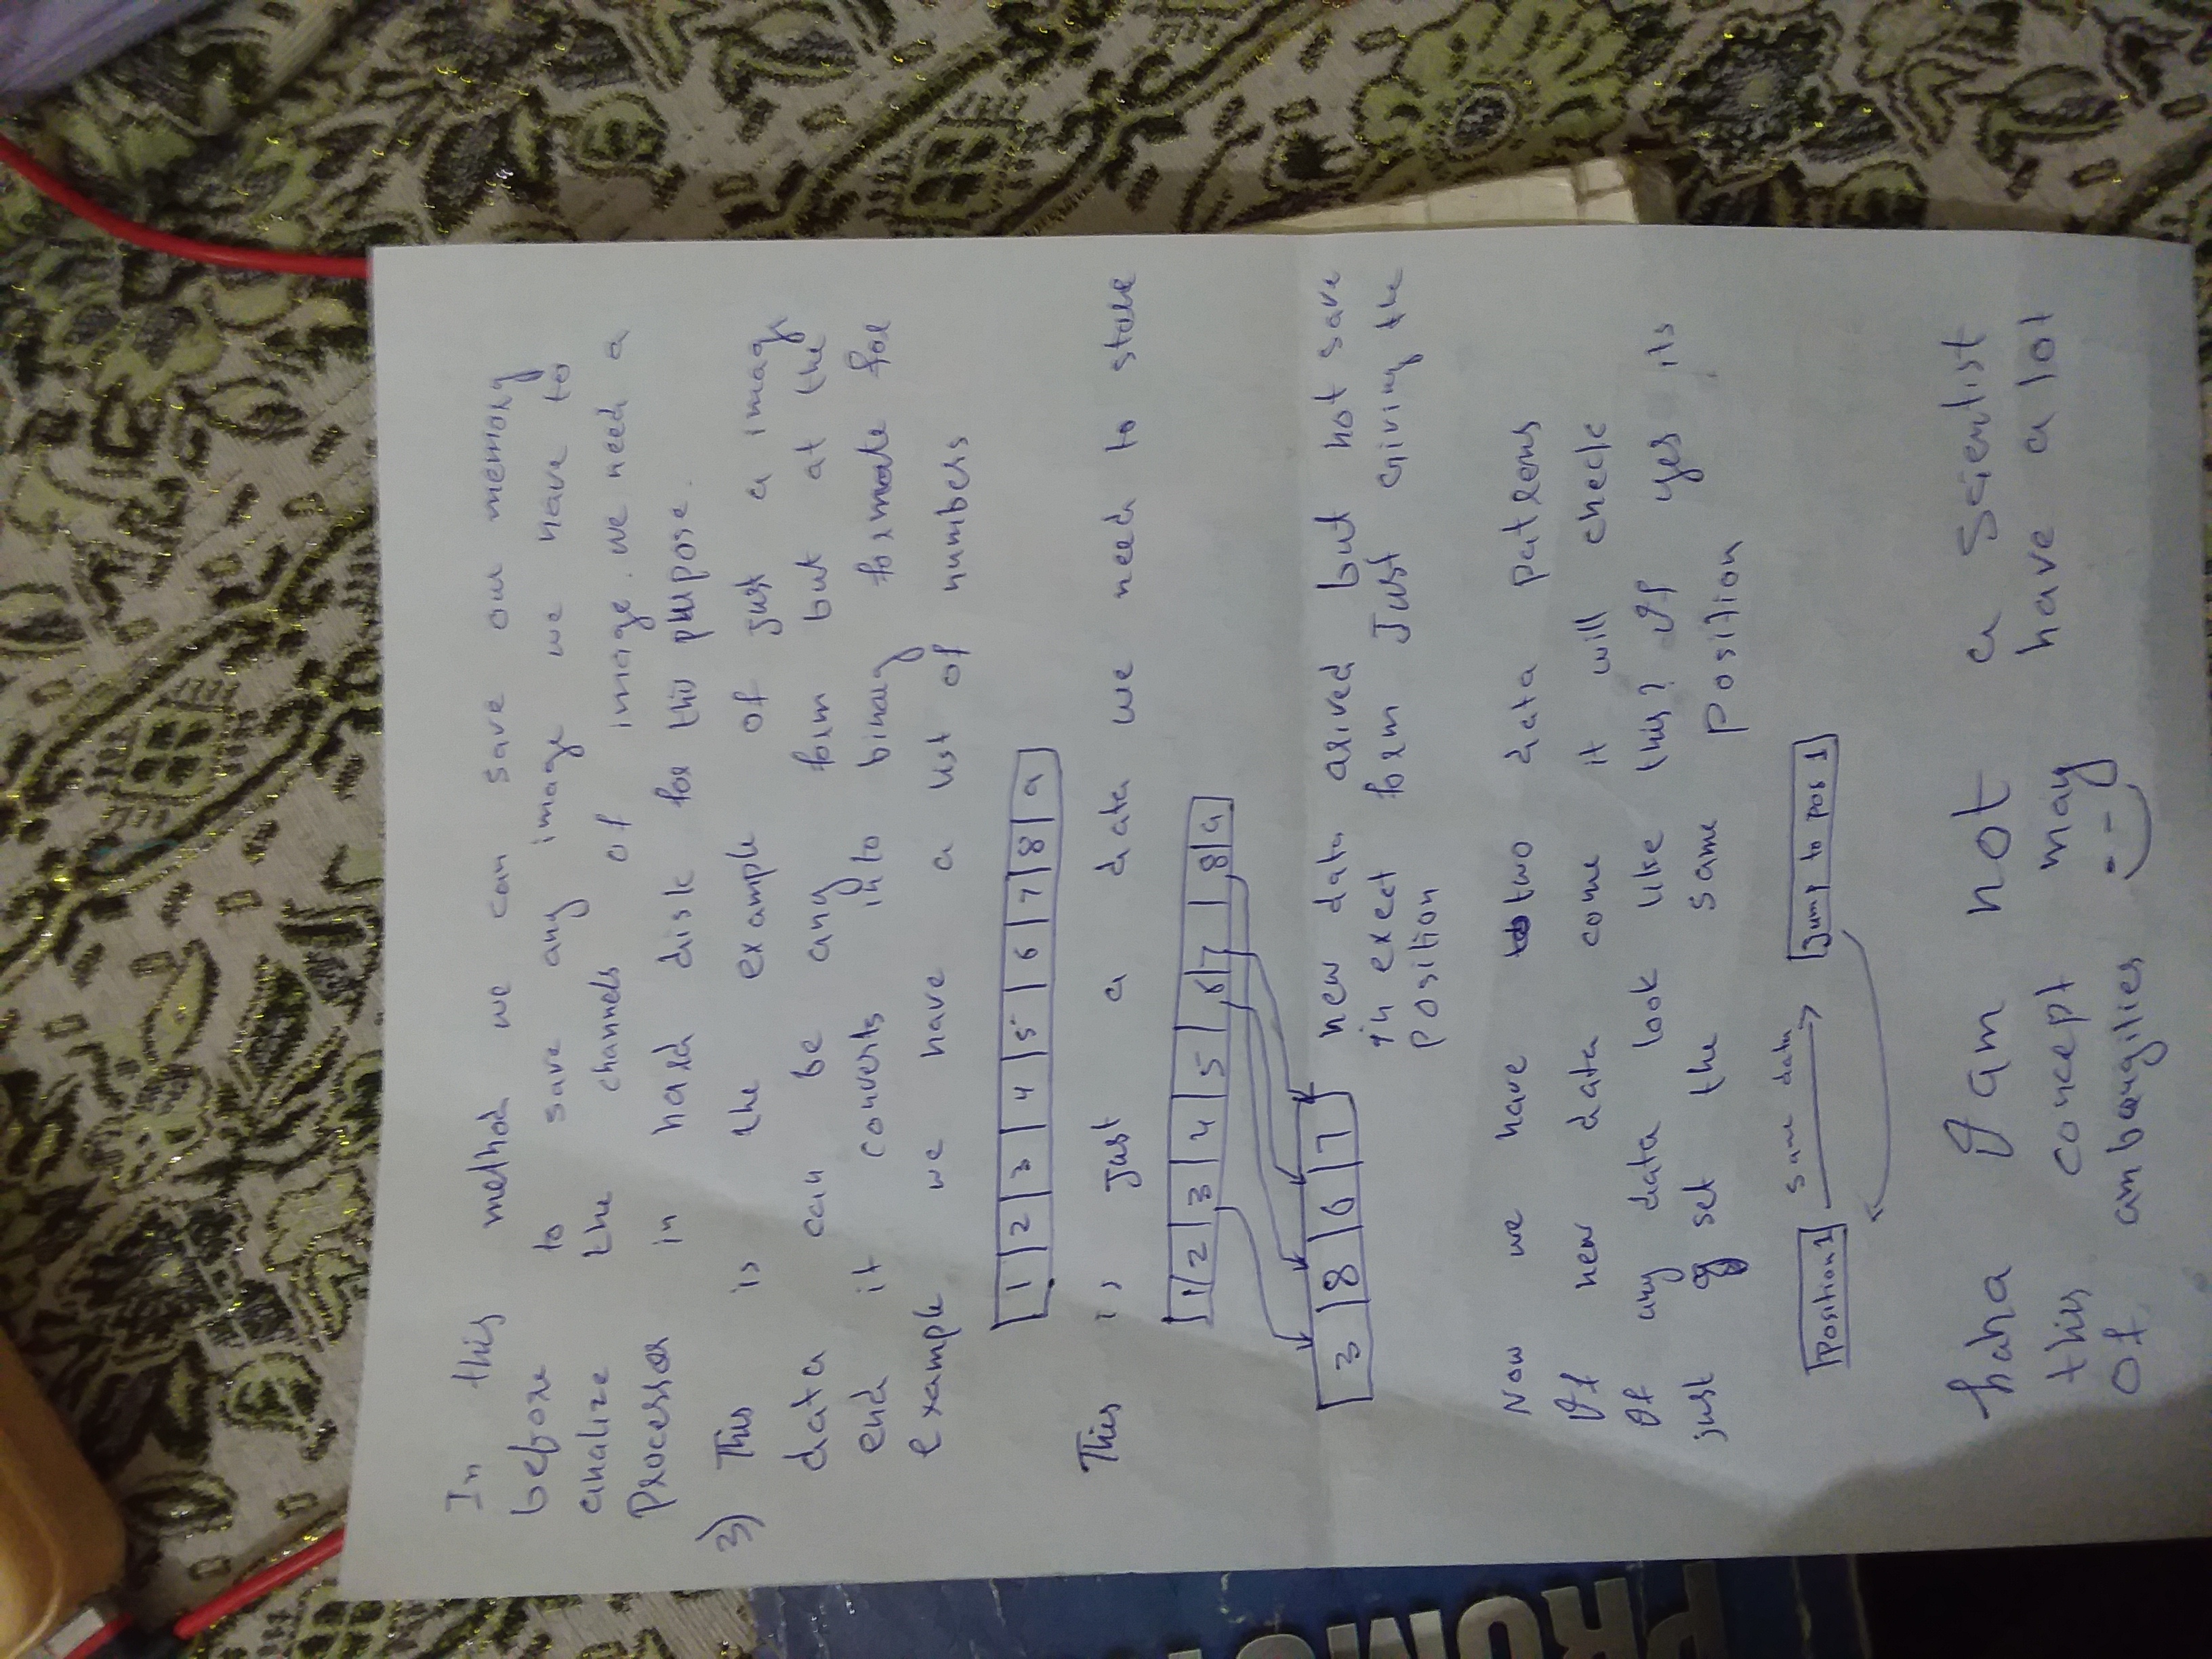 In this method we can save our memory
before to save any image we have to
analize the channels of image. we need a
Processor in hard disk for this purpose.
3) This is the example of just a image
data can be any form but at the
end it converts into binary formate for
example we have a list of numbers
1 2 3 4 5 6 7 8 9
This is just a data we need to store
1 2 3 4 5 6 7 8 9
3 8 6 7 new data arived but not save
in exect form Just Giving the
position
Now we have two data patterns
If new data come it will check
If any data look like this? If yes its
just set the same position
Position 1 same data Jump to pos 1
haha I am not a scientist
this concept may have a lot
of